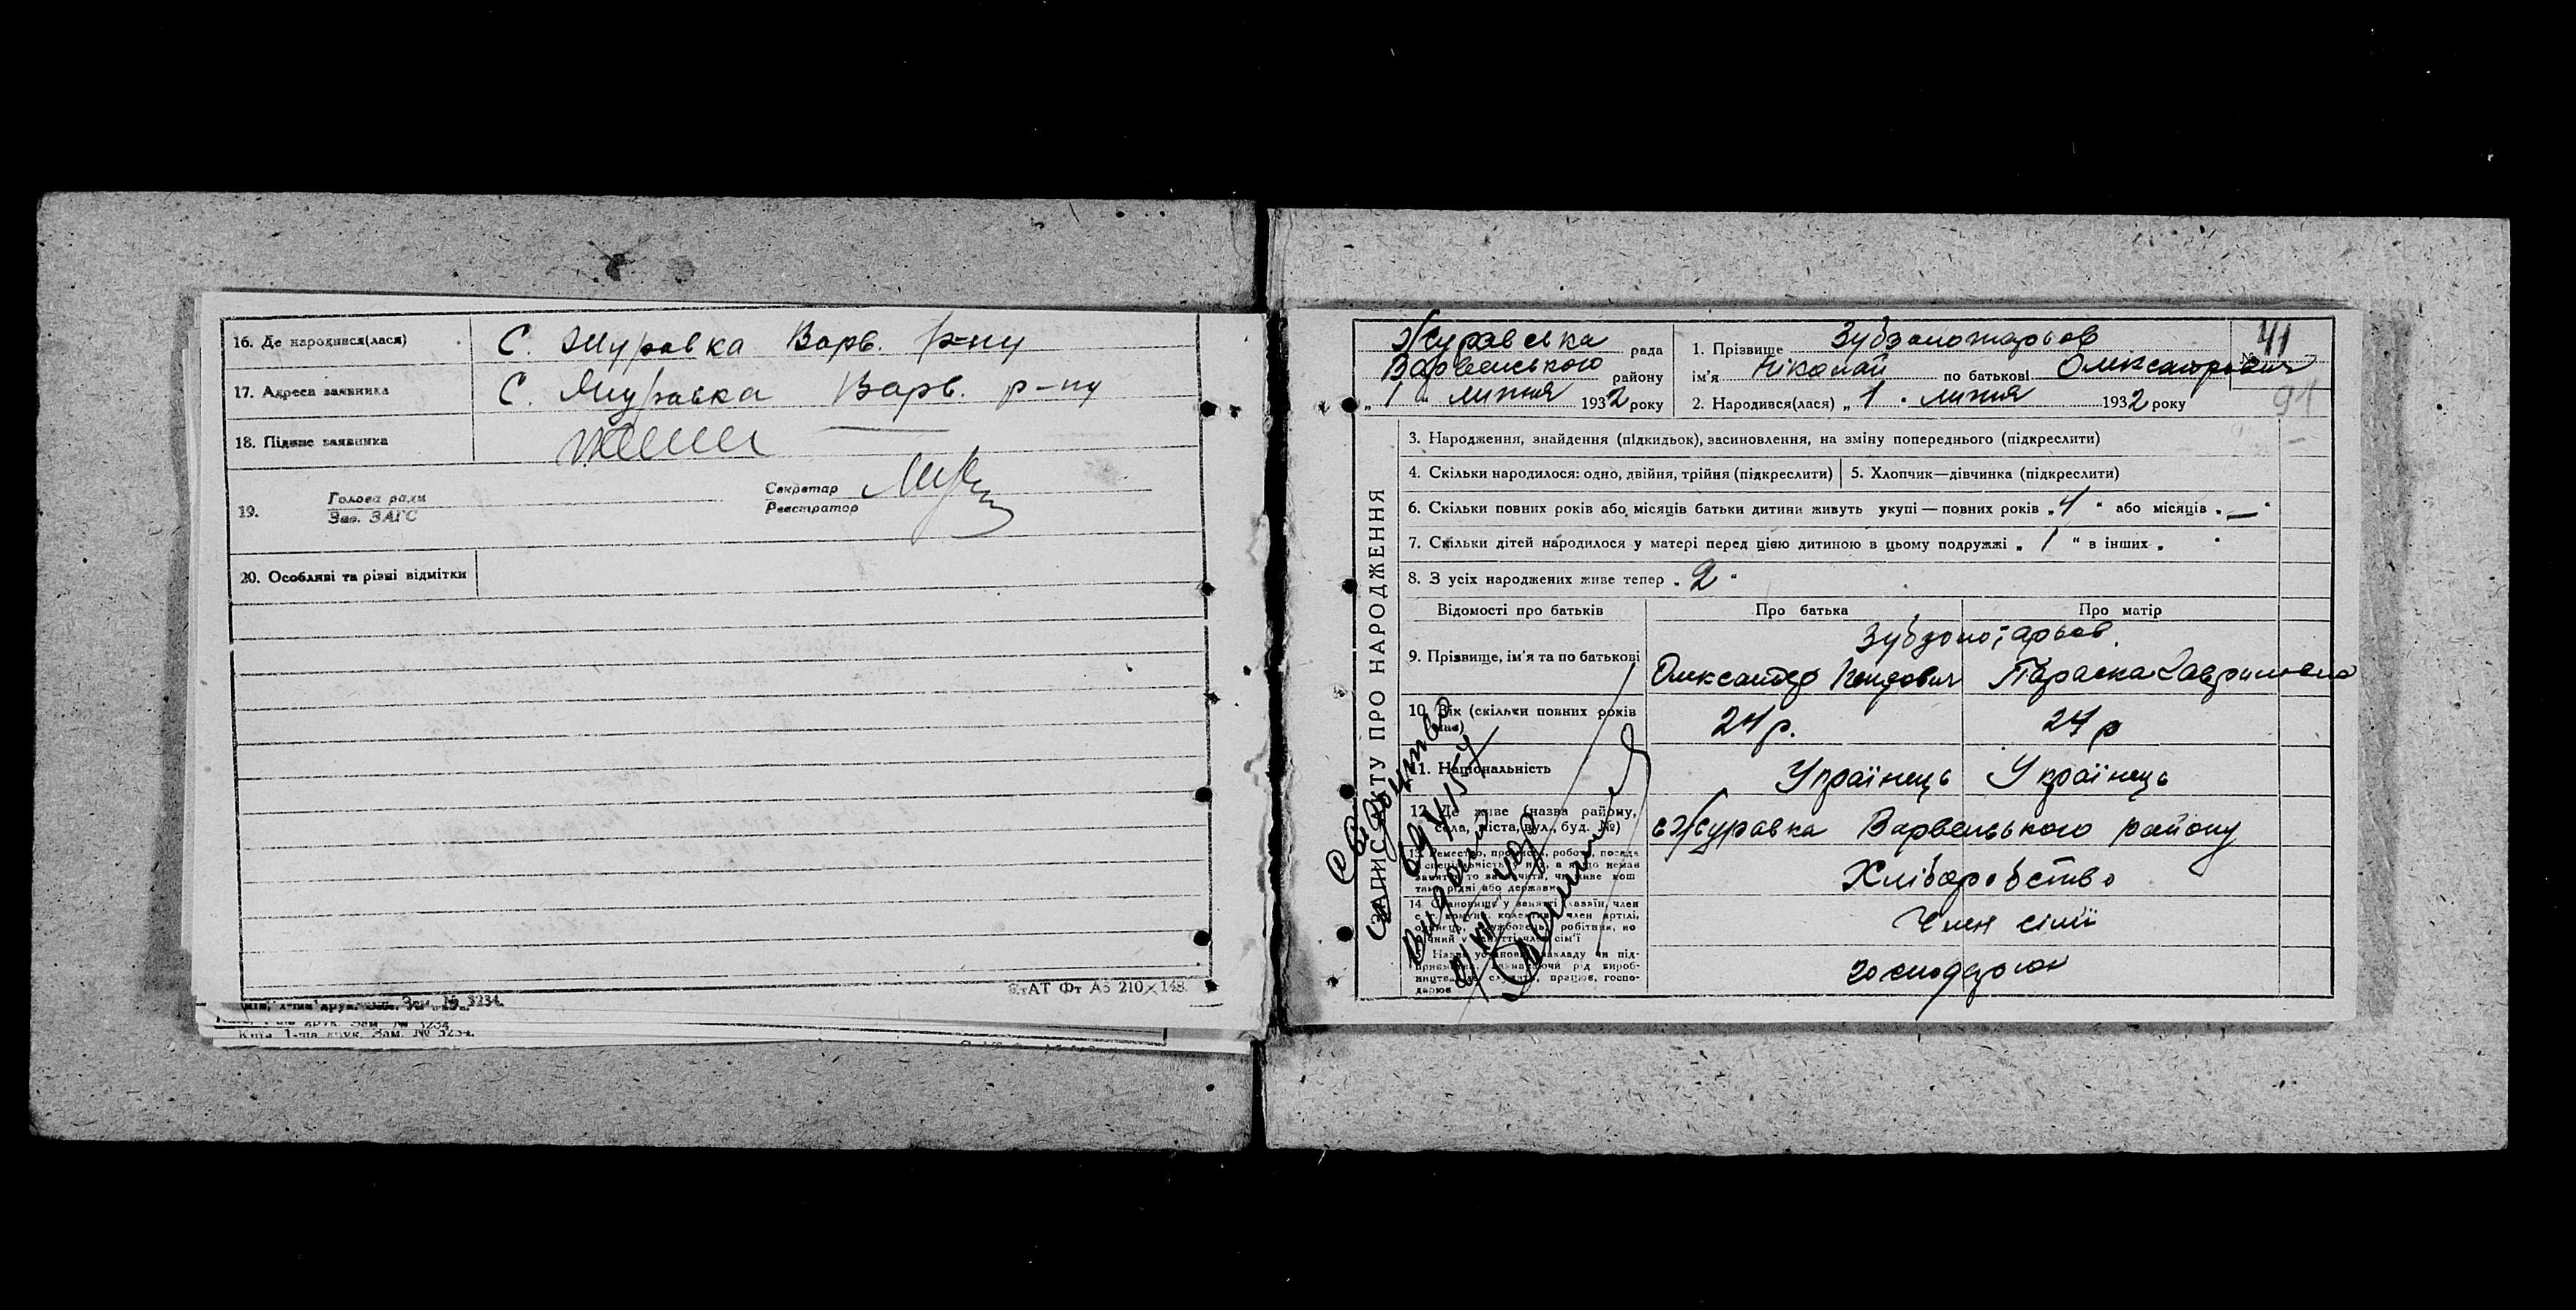 16. Де народився(лася) С. Журавка Варв. р-ну
17. Адреса заявника С. Журавка Варв. р-ну
18. Підпис заявника
19. Голова ради
Зав. ЗАГС
Секретар
Реєстратор
20. Особливі та різні відмітки
210×148
Зам. № 3234.
Зам. № 3234
Київ, 1-ша друк. Зам. № 3234.
ЗАПИС АКТУ ПРО НАРОДЖЕННЯ
Журавська рада
Варвенського району
„ 1 “ липня 1932 року
1. Прізвище
№ 41
ім'я Ніколай по батькові Олександрович
2. Народився(лася) „ 1 . липня 1932 року
91
3. Народження, знайдення (підкидьок), засиновлення, на зміну попереднього (підкреслити)
4. Скільки народилося: одно, двійня, трійня (підкреслити)
5. Хлопчик—дівчинка (підкреслити)
6. Скільки повних років або місяців батьки дитини живуть укупі — повних років „ 4 “ або місяців „ — “
7. Скільки дітей народилося у матері перед цією дитиною в цьому подружжі „ 1 “ в інших „ “
8. З усіх народжених живе тепер „ 2 “
Відомості про батьків
Про батька
Про матір
9. Прізвище, ім'я та по батькові
Олександер
Параска Гаврилівна
10. Вік (скільки повних років
24 р.
24 р
11. Національність
Українець
Українець
12. Де живе (назва району, села, міста, вул., буд. №)
с Журавка Варвенського району
Хліборобство
Член сімії
господарюю